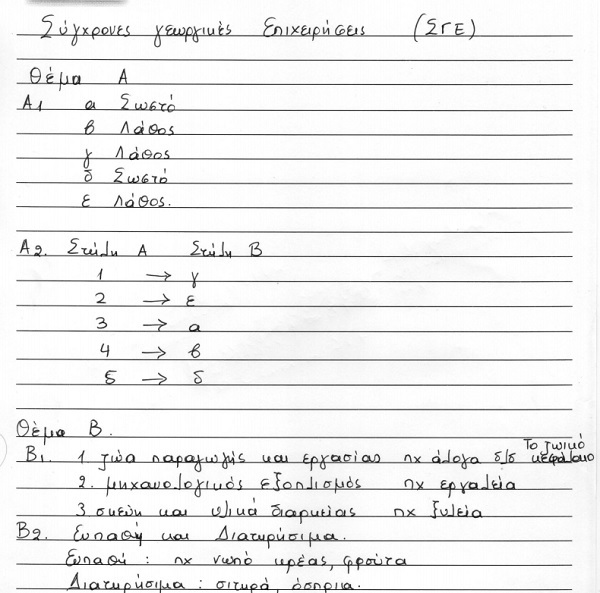 Σύγχρονες γεωργικές Επιχειρήσεις (ΣΓΕ)
Θέμα Α
Α1 α Σωστό
β Λάθος
γ Λάθος
δ Σωστό
ε Λάθος.
Α2. Στήλη Α Στήλη Β
1 → γ
2 → ε
3 → α
4 → β
5 → δ
Θέμα Β.
Το ζωικό
Β1. 1 ζώα παραγωγής και εργασίας πχ άλογα δ/δ κεφάλαιο
2. μηχανολογικός εξοπλισμός πχ εργαλεία
3 σκεύη και υλικά διαρκείας πχ ξυλεία
Β2. Ευπαθή και Διατηρήσιμα.
Ευπαθή : πχ νωπό κρέας, φρούτα
Διατηρήσιμα : σιτηρά, όσπρια.